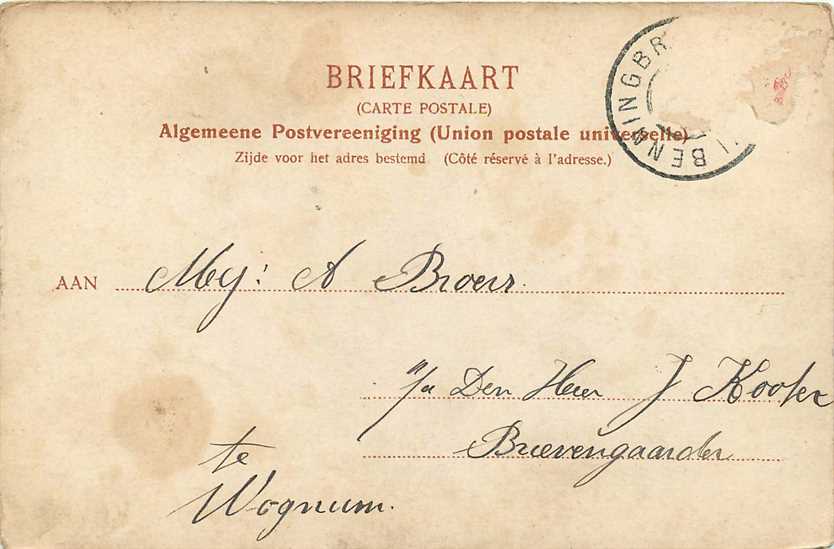 BRIEFKAART
(CARTE POSTALE)
Algemeene Postvereeniging (Union postale universelle)
Zijde voor het adres bestemd (Côté réservé à l'adresse.)
BENNINGBR
AAN Mej: A Broers.
p/a Den Heer J Kooter
Brievengaarder
te
Wognum.